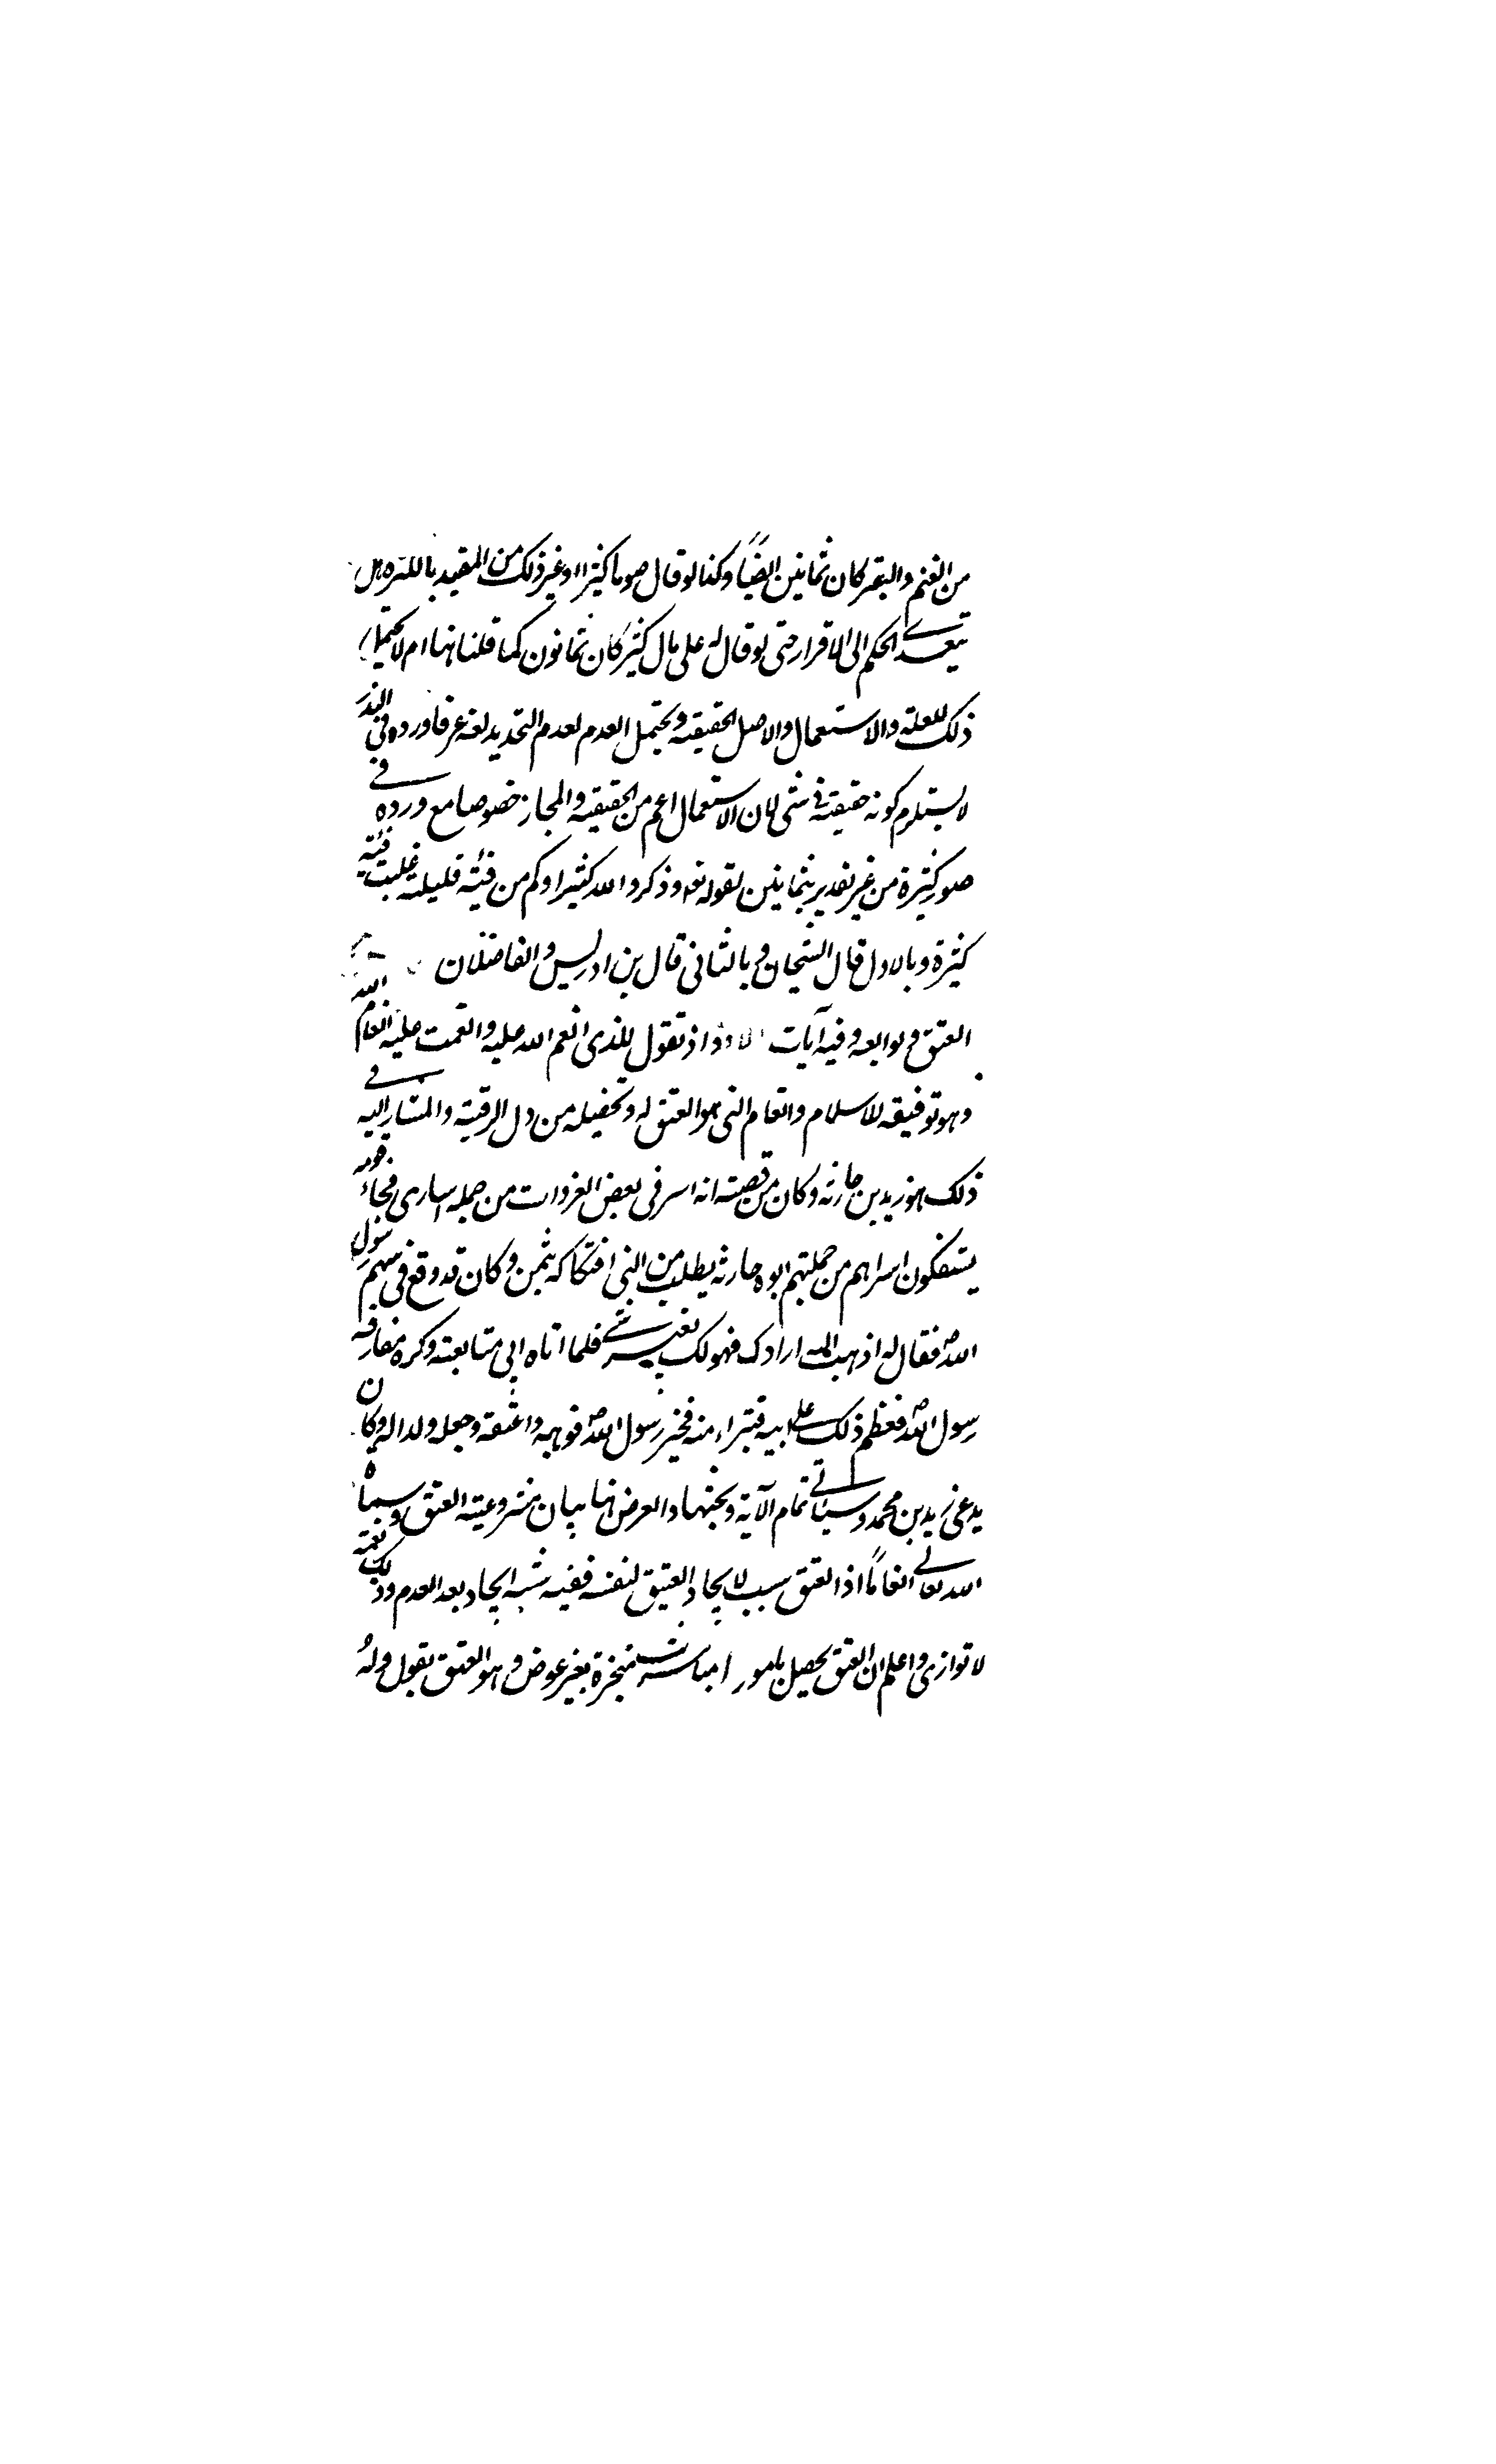 من الغنم والبقر كان ثمانين ايضاً وكذا لو قال صوما كثيرا او غير ذلك من المقيد بالكثرة هل
يتعدى الحكم الى الاقرار حتى لو قال له على مال كثير كان ثمانون كما قلنا هنا ام لا يحتمل
ذلك للعلة والاستعمال والاصل الحقيقة ويحتمل العدم لعدم التحديد لغة عرفا وروده في النذر
لا يستلزم كونه حقيقة في شى لان الاستعمال اعم من الحقيقة والمجاز خصوصا مع وروده في
صور كثيرة من غير تقدير بثمانين لقوله تع وذكروا الله كثيرا وكم من فئة قليلة غلبت فئة
كثيرة وبالاول قال الشيخان وبالثانى قال بن ادريس والفاضلان
العتق وتوابعه وفيه آيات الاولى واذ تقول للذى انعم الله عليه وانعمت عليه انعام الله
وهو توفيقه للاسلام وانعام النبى هو العتق له وتخصيله من ذل الرقية والمشار اليه في
ذلك هو زيد بن حارثه وكان من قصته انه اسر فى بعض الغزوات من جملة اسارى فجاء قومه
يستفكون اسراهم من جملتهم ابوه حارثه يطلب من النبى افتكاكه بثمن وكان قد وقع فى سهم رسول
الله ص فقال له اذهب اليه ارادك فهو لك بغير شى فلما اتاه ابى متابعته وكره مفارقة
رسول الله ص فعظم ذلك على ابيه فتبراء منه فخير رسول الله ص فوهبه واعتقه وجعل ولدا له وكان
يدعى زيد بن محمد وسياتى تمام الآية وبحثها والغرض هنا بيان مشروعية العتق وسماه
الله تعالى انعاماً اذ العتق سبب لايجاد العتيق لنفسه ففيه شبه ايجاد بعد العدم وذلك نعمة
لا توازى واعلم ان العتق يحصل بامور ا مباشرة منجزة بغير عوض وهو العتق بقول وله